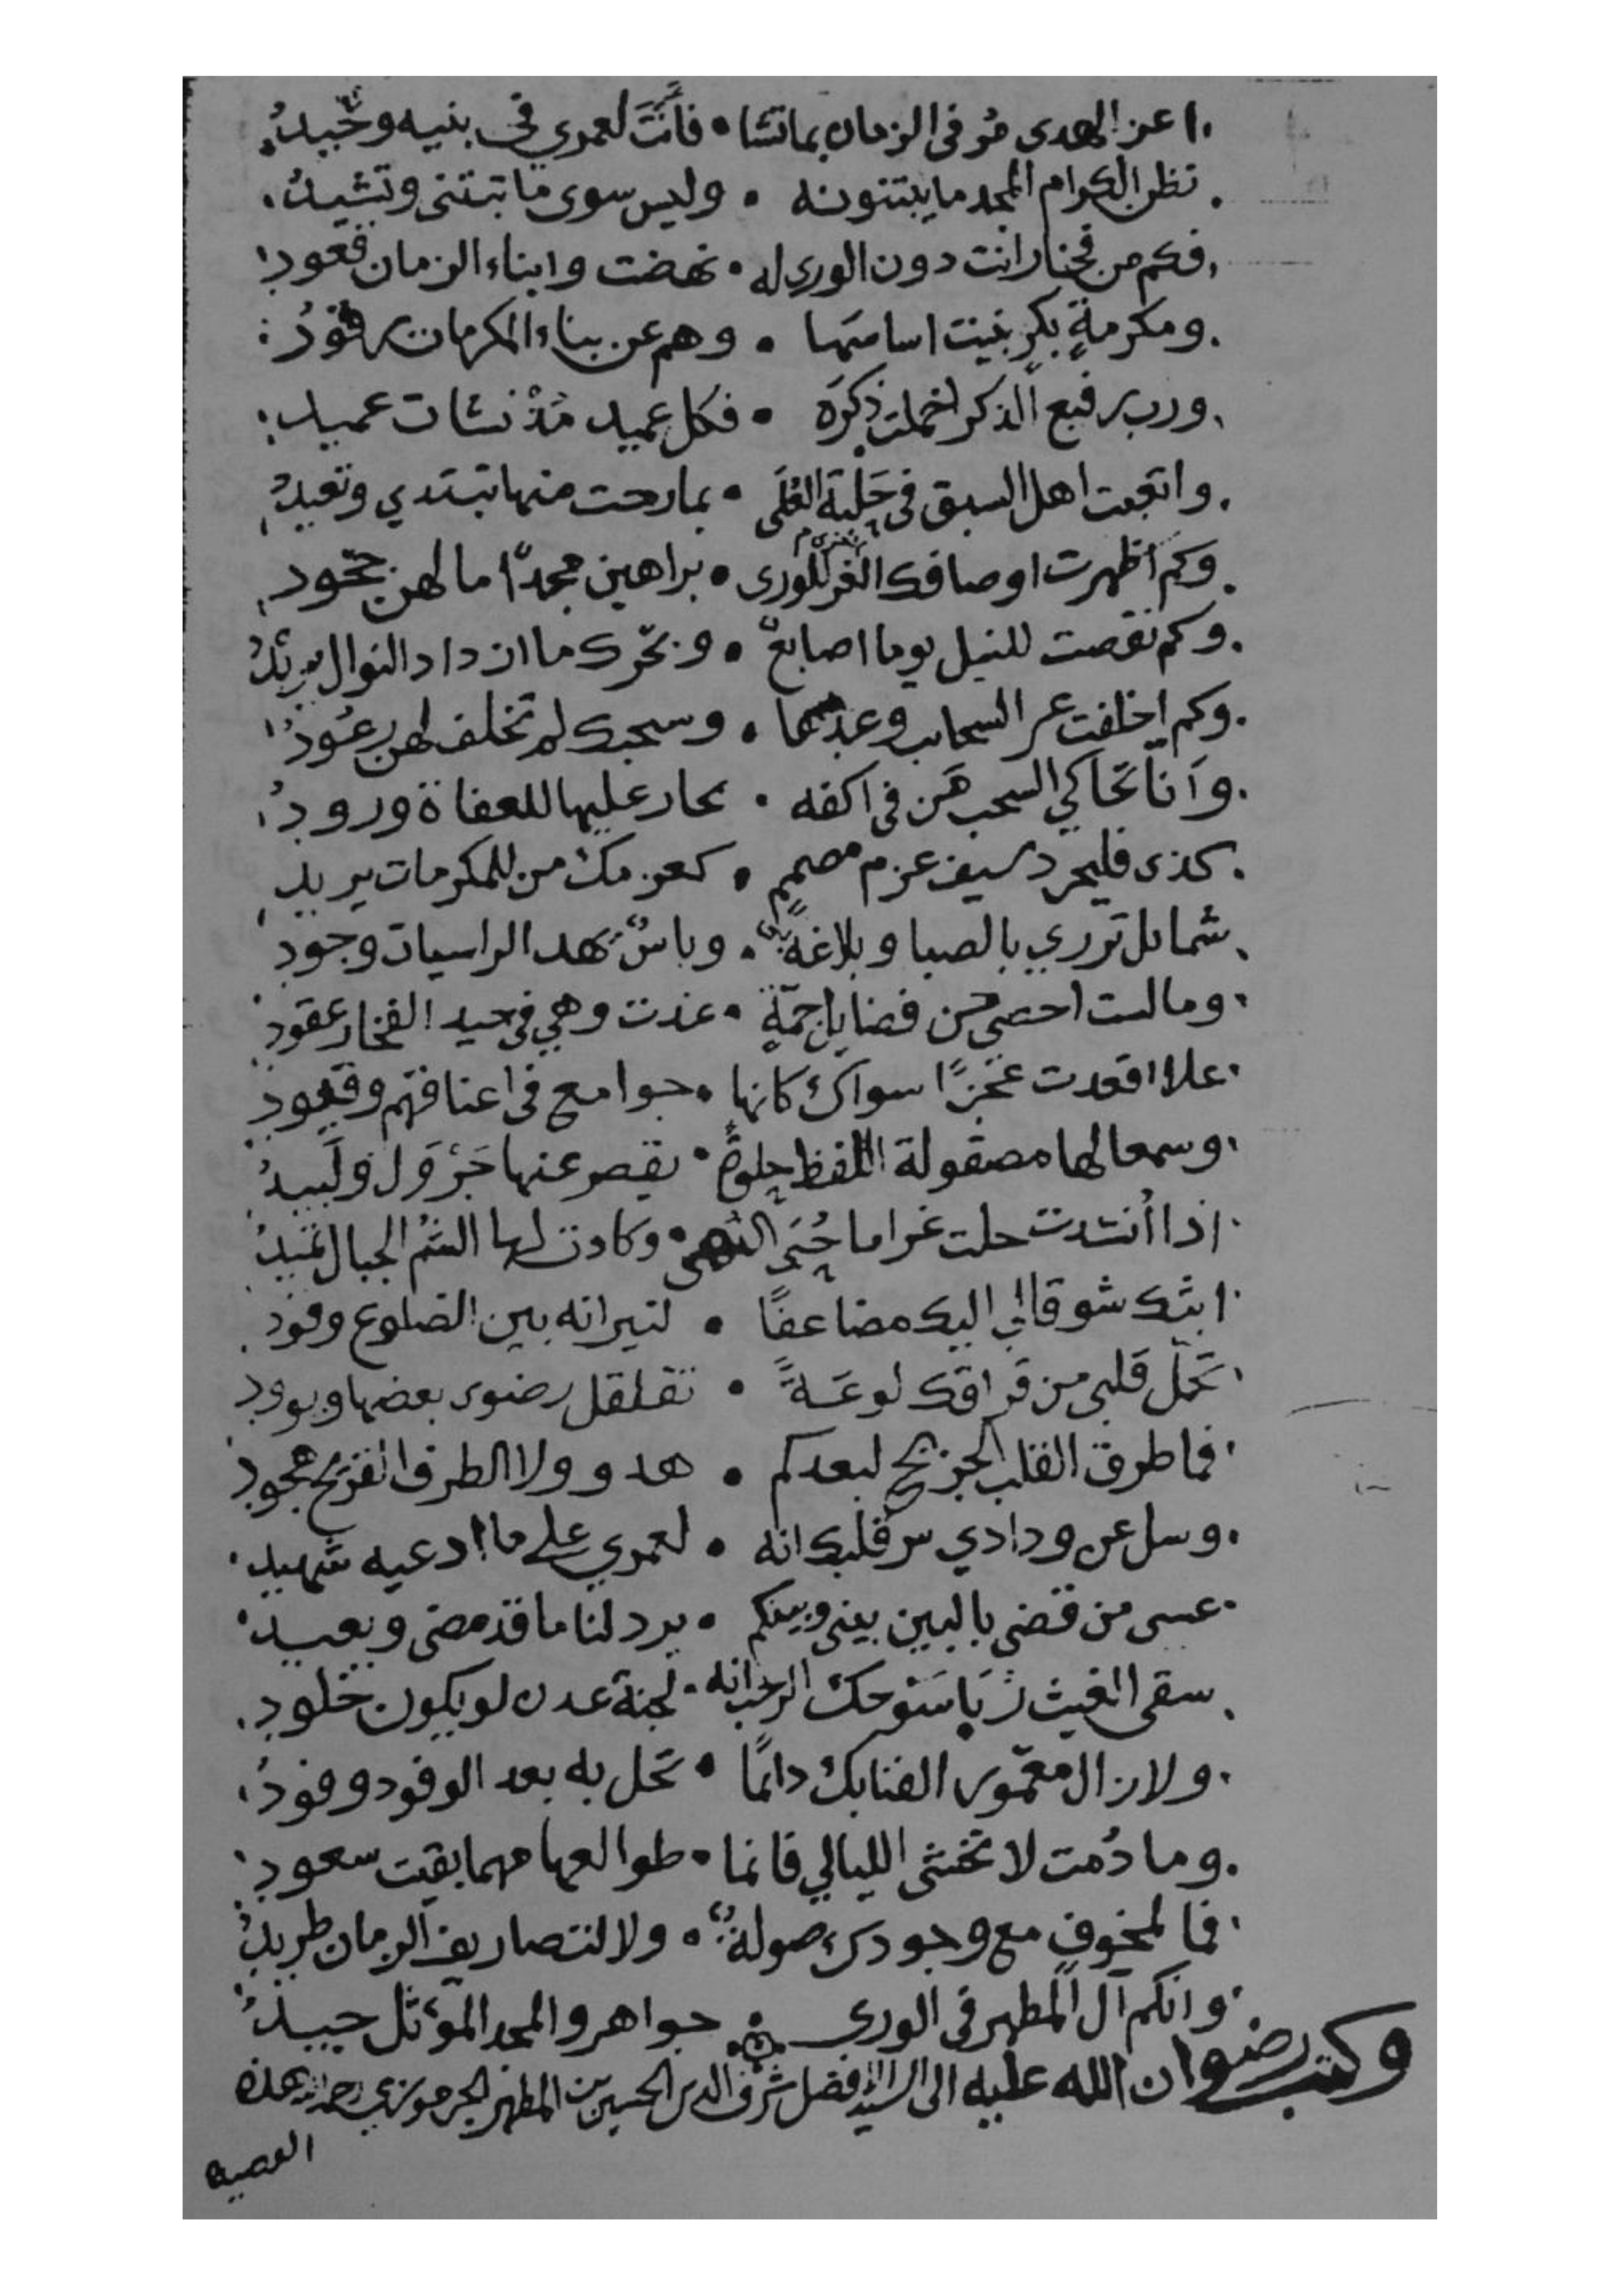 اعز الهدى مُر فى الزمان بما تشا • فأنتَ لعمري فى بنيه وحيدُ
تظن الكرام المجد ما يبتنونه • وليس سوى ما تبتنى وتشيدُ
فكم من فخار انت دون الورى له • نهضت وابناء الزمان قعود
ومكرمةٍ بكرٍ بنيت اساسها • وهم عن بناء المكرمات رقودُ
ورب رفيع الذكر اخملت ذكرَه • فكل عميد مُذْ نشات عميد
واتعبت اهل السبق فى حَلبة العُلَى • بما رحت منها تبتدي وتعيدُ
وكم اظهرت اوصافك الغر للورى • براهين مجدًا ما لهن جحود
وكم نقصت للنيل يوما اصابعٌ • وبحرك ما ازداد النوال يزيدُ
وكم اخلفت غر السحاب وعدها • وسحبك لم تخلف لهن رعُودُ
وَانا تحاكي السحب هَن فى اكفه • بحار عليها للعفاة ورودُ
كذى فليجرد سيف عزم مصممٍ • كعزمك من للمكرمات يريد
شمايل تزري بالصبا وبلاغةٌ • وباسٌ يهد الراسيات وجود
وما لست احصى من فضايل جمّةٍ • غدت وهي فى جيد الفخار عقود
علا اقعدت عجزًا سواك كانها • جوامع فى اعناقهم وقيود
وسمعا لها مصقولة اللفظ حلوةً • يقصر عنها جَرْوَل ولَبيدُ
اذا أنشدت حلت غراما حُبَى النُهى • وكادت لها الشمُ الجبال تميدُ
ابثك شوقا لي اليك مضاعفًا • لنيرانه بين الضلوع وقود
تحمّل قلبى من فراقك لوعَةً • تقلقل رضوى بعضها ويوود
فما طرق القلب الجريح لبعدكم • هدو ولا الطرف القريح هجود
وسل عن ودادي سر قلبك انه • لعمري على ما ادعيه شهيد
عسى من قضى بالبين بينى وبينكم • يرد لنا ما قد مضى ويعيد
سقى الغيث رَبا سَوحك الرحب انه • لجنة عدن لو يكون خلود
ولا زال معمور الفنا بك دائمًا • تحل به بعد الوفود وفودُ
وما دُمت لا تخشى الليالي فانما • طوالعها مهما بقيت سعود
فما لمخوف مع وجودك صولةٌ • ولا لتصاريف الزمان طريدُ
وانكم آل المطهر فى الورى • جواهر والمجد المؤثل جيدُ
وكتب رضوان الله عليه الى السيد الافضل شرف الدين الحسين بن المطهر الجرموزي رحمه الله هذه
القصيدة